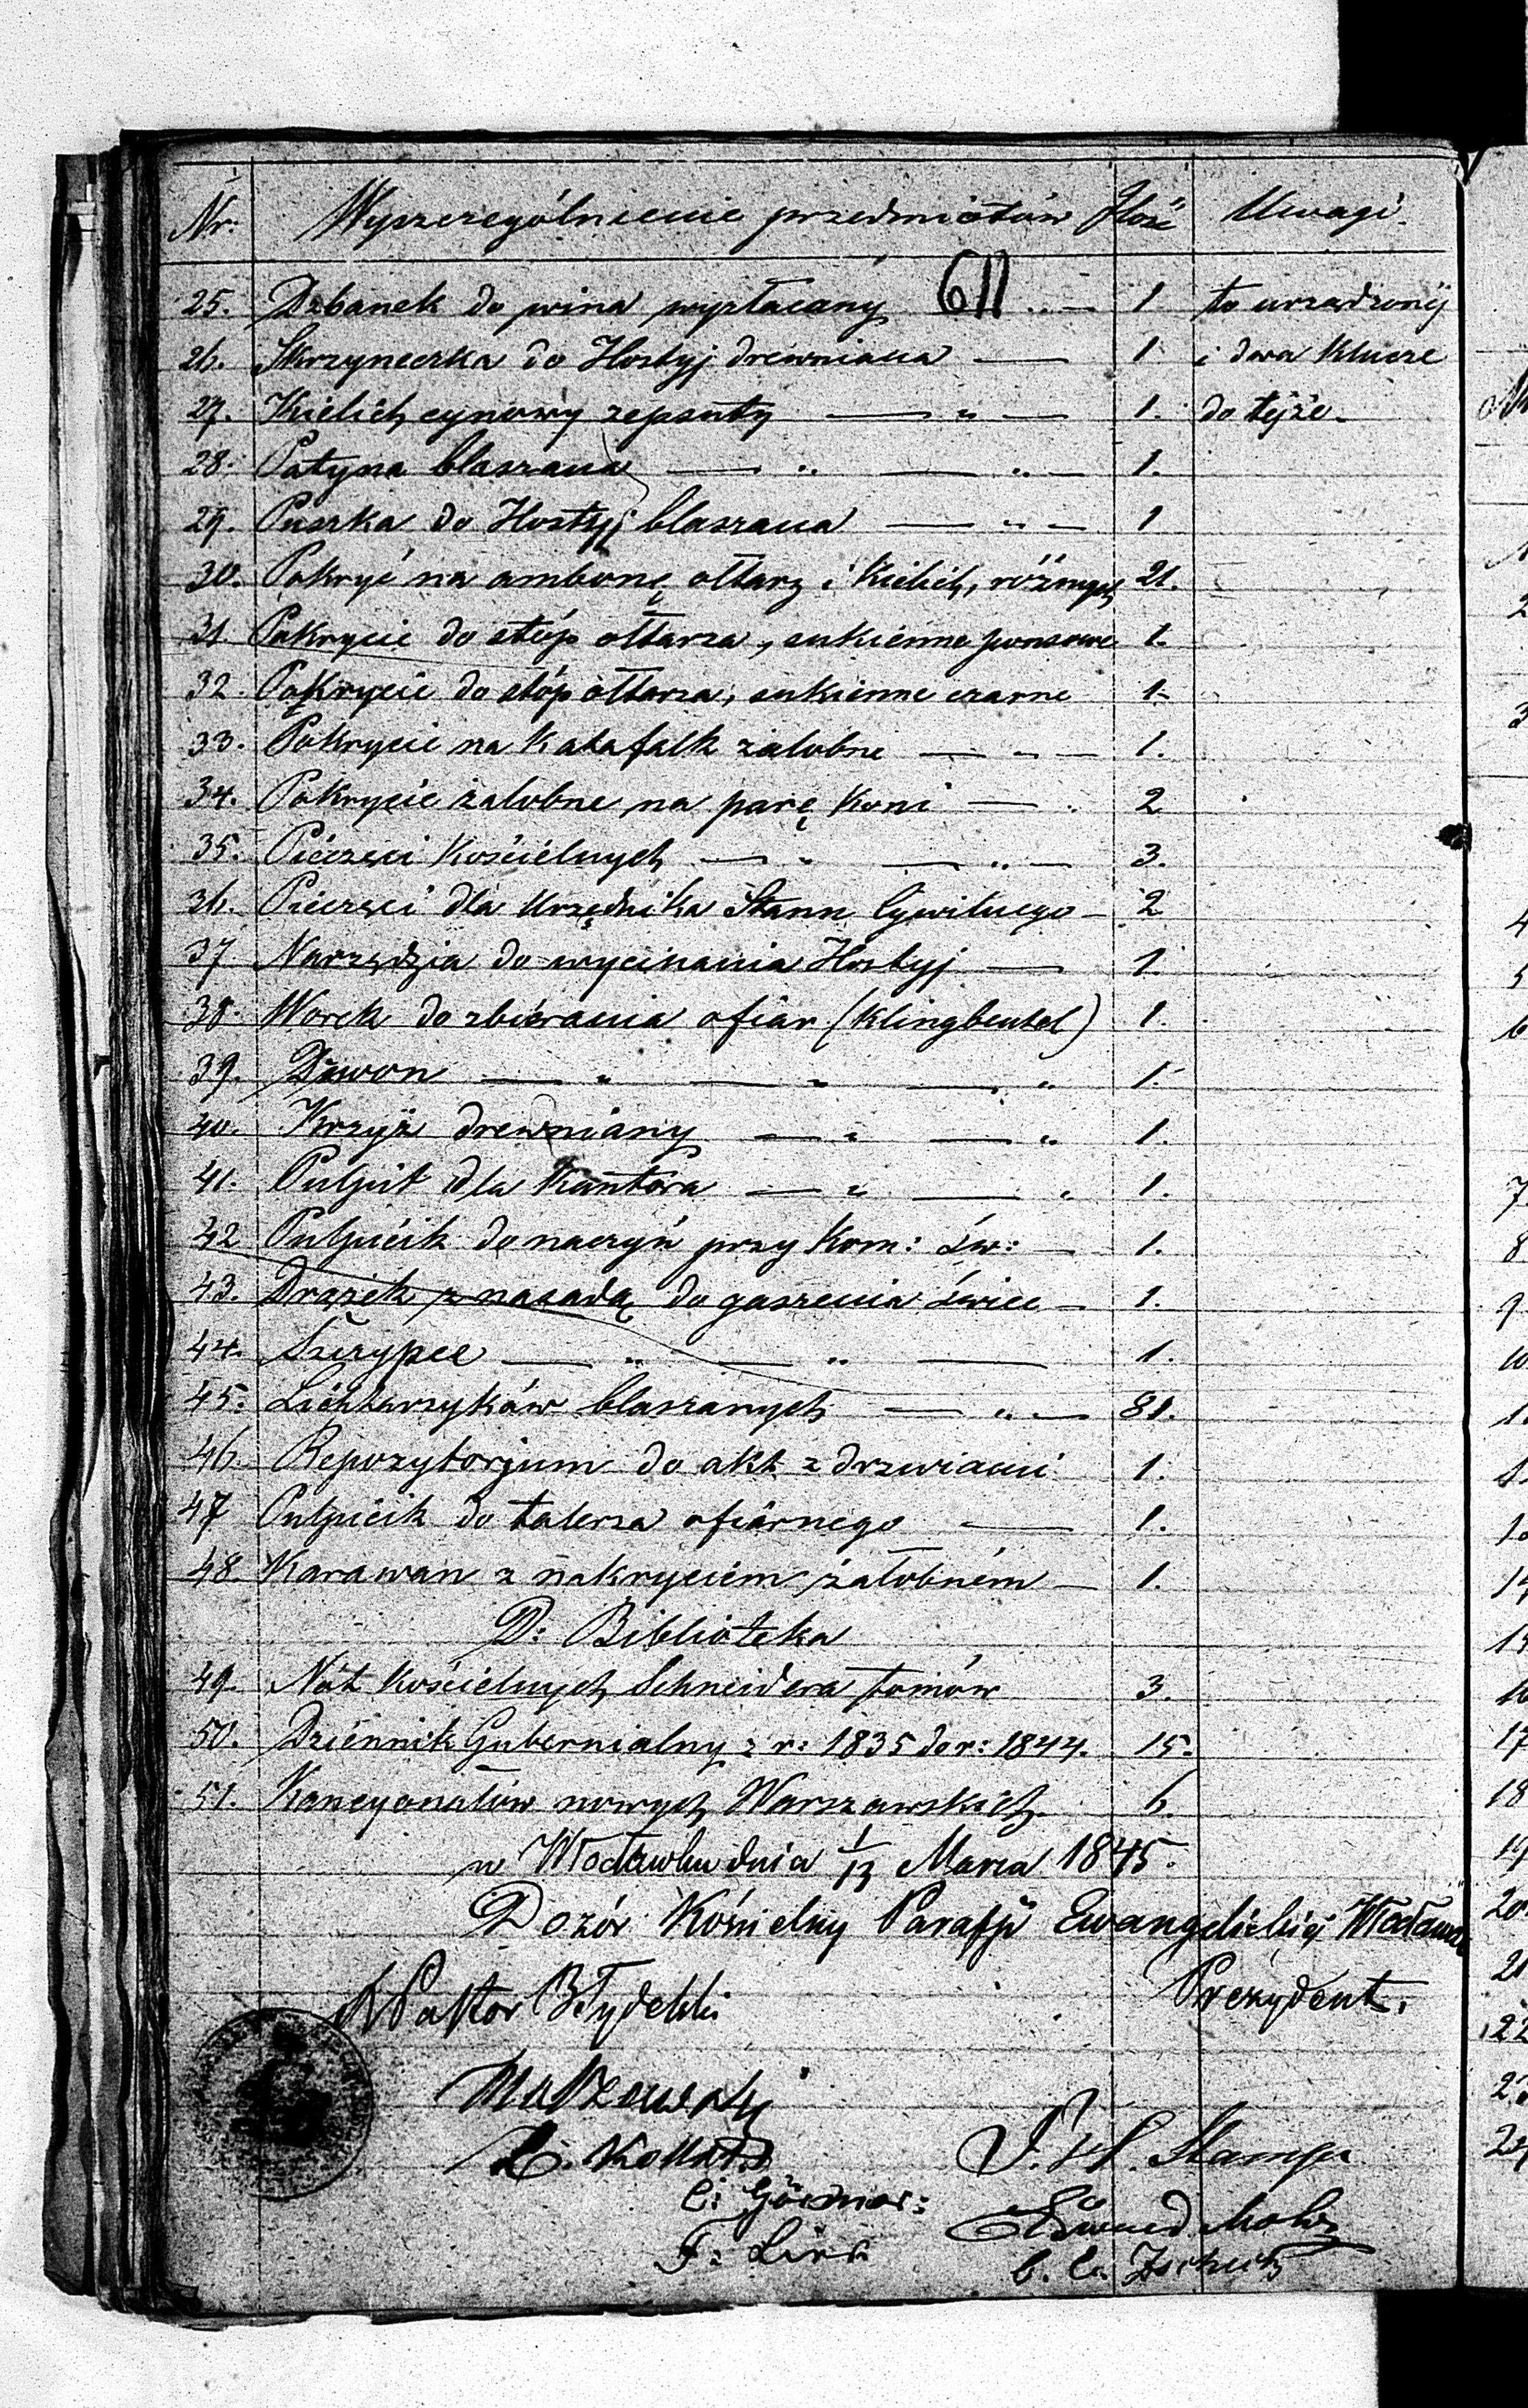 Nr. Wyszczególnienie przedmiotów Ilość Uwagi.
611
25. Dzbanek do wina wyzłacany 1 to urządzonij
26. Skrzyneczka do Hostyj drewniana 1 i dwa klucze
27. Kielich cynowy zepsuty 1. do tejże.
28. Patyna blaszana 1.
29. Puszka do Hostyj blaszana 1
30. Pokryć na ambonę, ołtarz i Kielich, różnych 21.
31. Pokrycie do stóp ołtarza, sukienne ponsowe 1.
32. Pokrycie do stóp ołtarza, sukienne czarne 1.
33. Pokrycie na Katafalk żałobne 1.
34. Pokrycie żałobne na parę koni 2
35. Pieczęci Kościelnych 3.
36. Pieczęci dla Urzędnika Stanu Cywilnego 2
37 Narzędzia do wycinania Hostyj 1.
38. Worek do zbierania ofiar (Klingbeutel) 1.
39. Dzwon 1.
40. Krzyż drewniany 1.
41. Pulpit dla Kantora 1.
42 Pulpicik do naczyń przy Kom: Św: 1.
43. Drążek z nasadą do gaszenia świec 1.
44. Szczypce 1.
45. Lichtarzyków blaszanych 81.
46. Repozytorjum do akt z drzwiami 1.
47 Pulpicik do talerza ofiarnego 1.
48. Karawan z nakryciem żałobném 1.
D: Biblioteka
49. Nót Kościelnych Schneidera tomów 3.
50. Dziennik Gubernialny z r: 1835 do r: 1844. 15.
51. Kancyonałów nowych Warszawskich. 6.
w Włocławku dnia 1/13 Marca 1845.
Dozór Kościelny Parafji Ewangelickiéj
Pastor Prezydent.
C:
F: